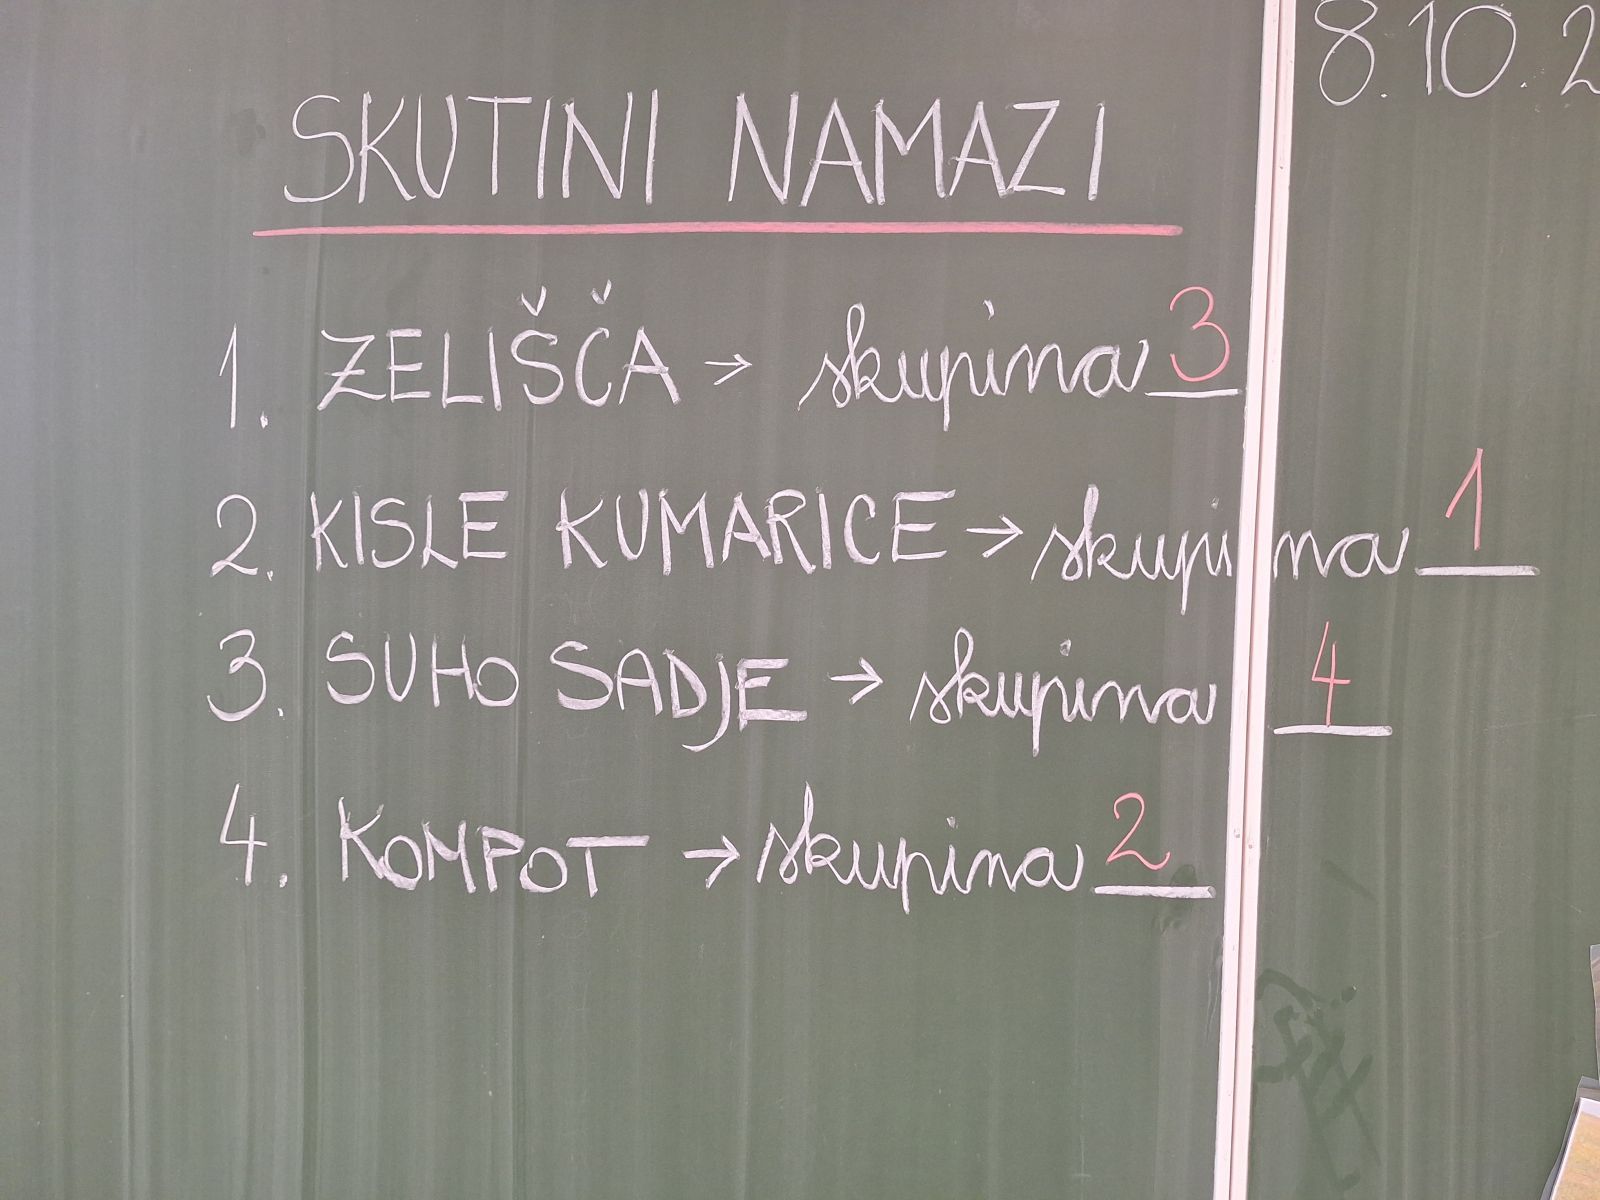 8.10.2
SKUTINI NAMAZI
1. ZELIŠČA → skupina 3
2. KISLE KUMARICE → skupina 1
3. SUHO SADJE → skupina 4
4. KOMPOT → skupina 2